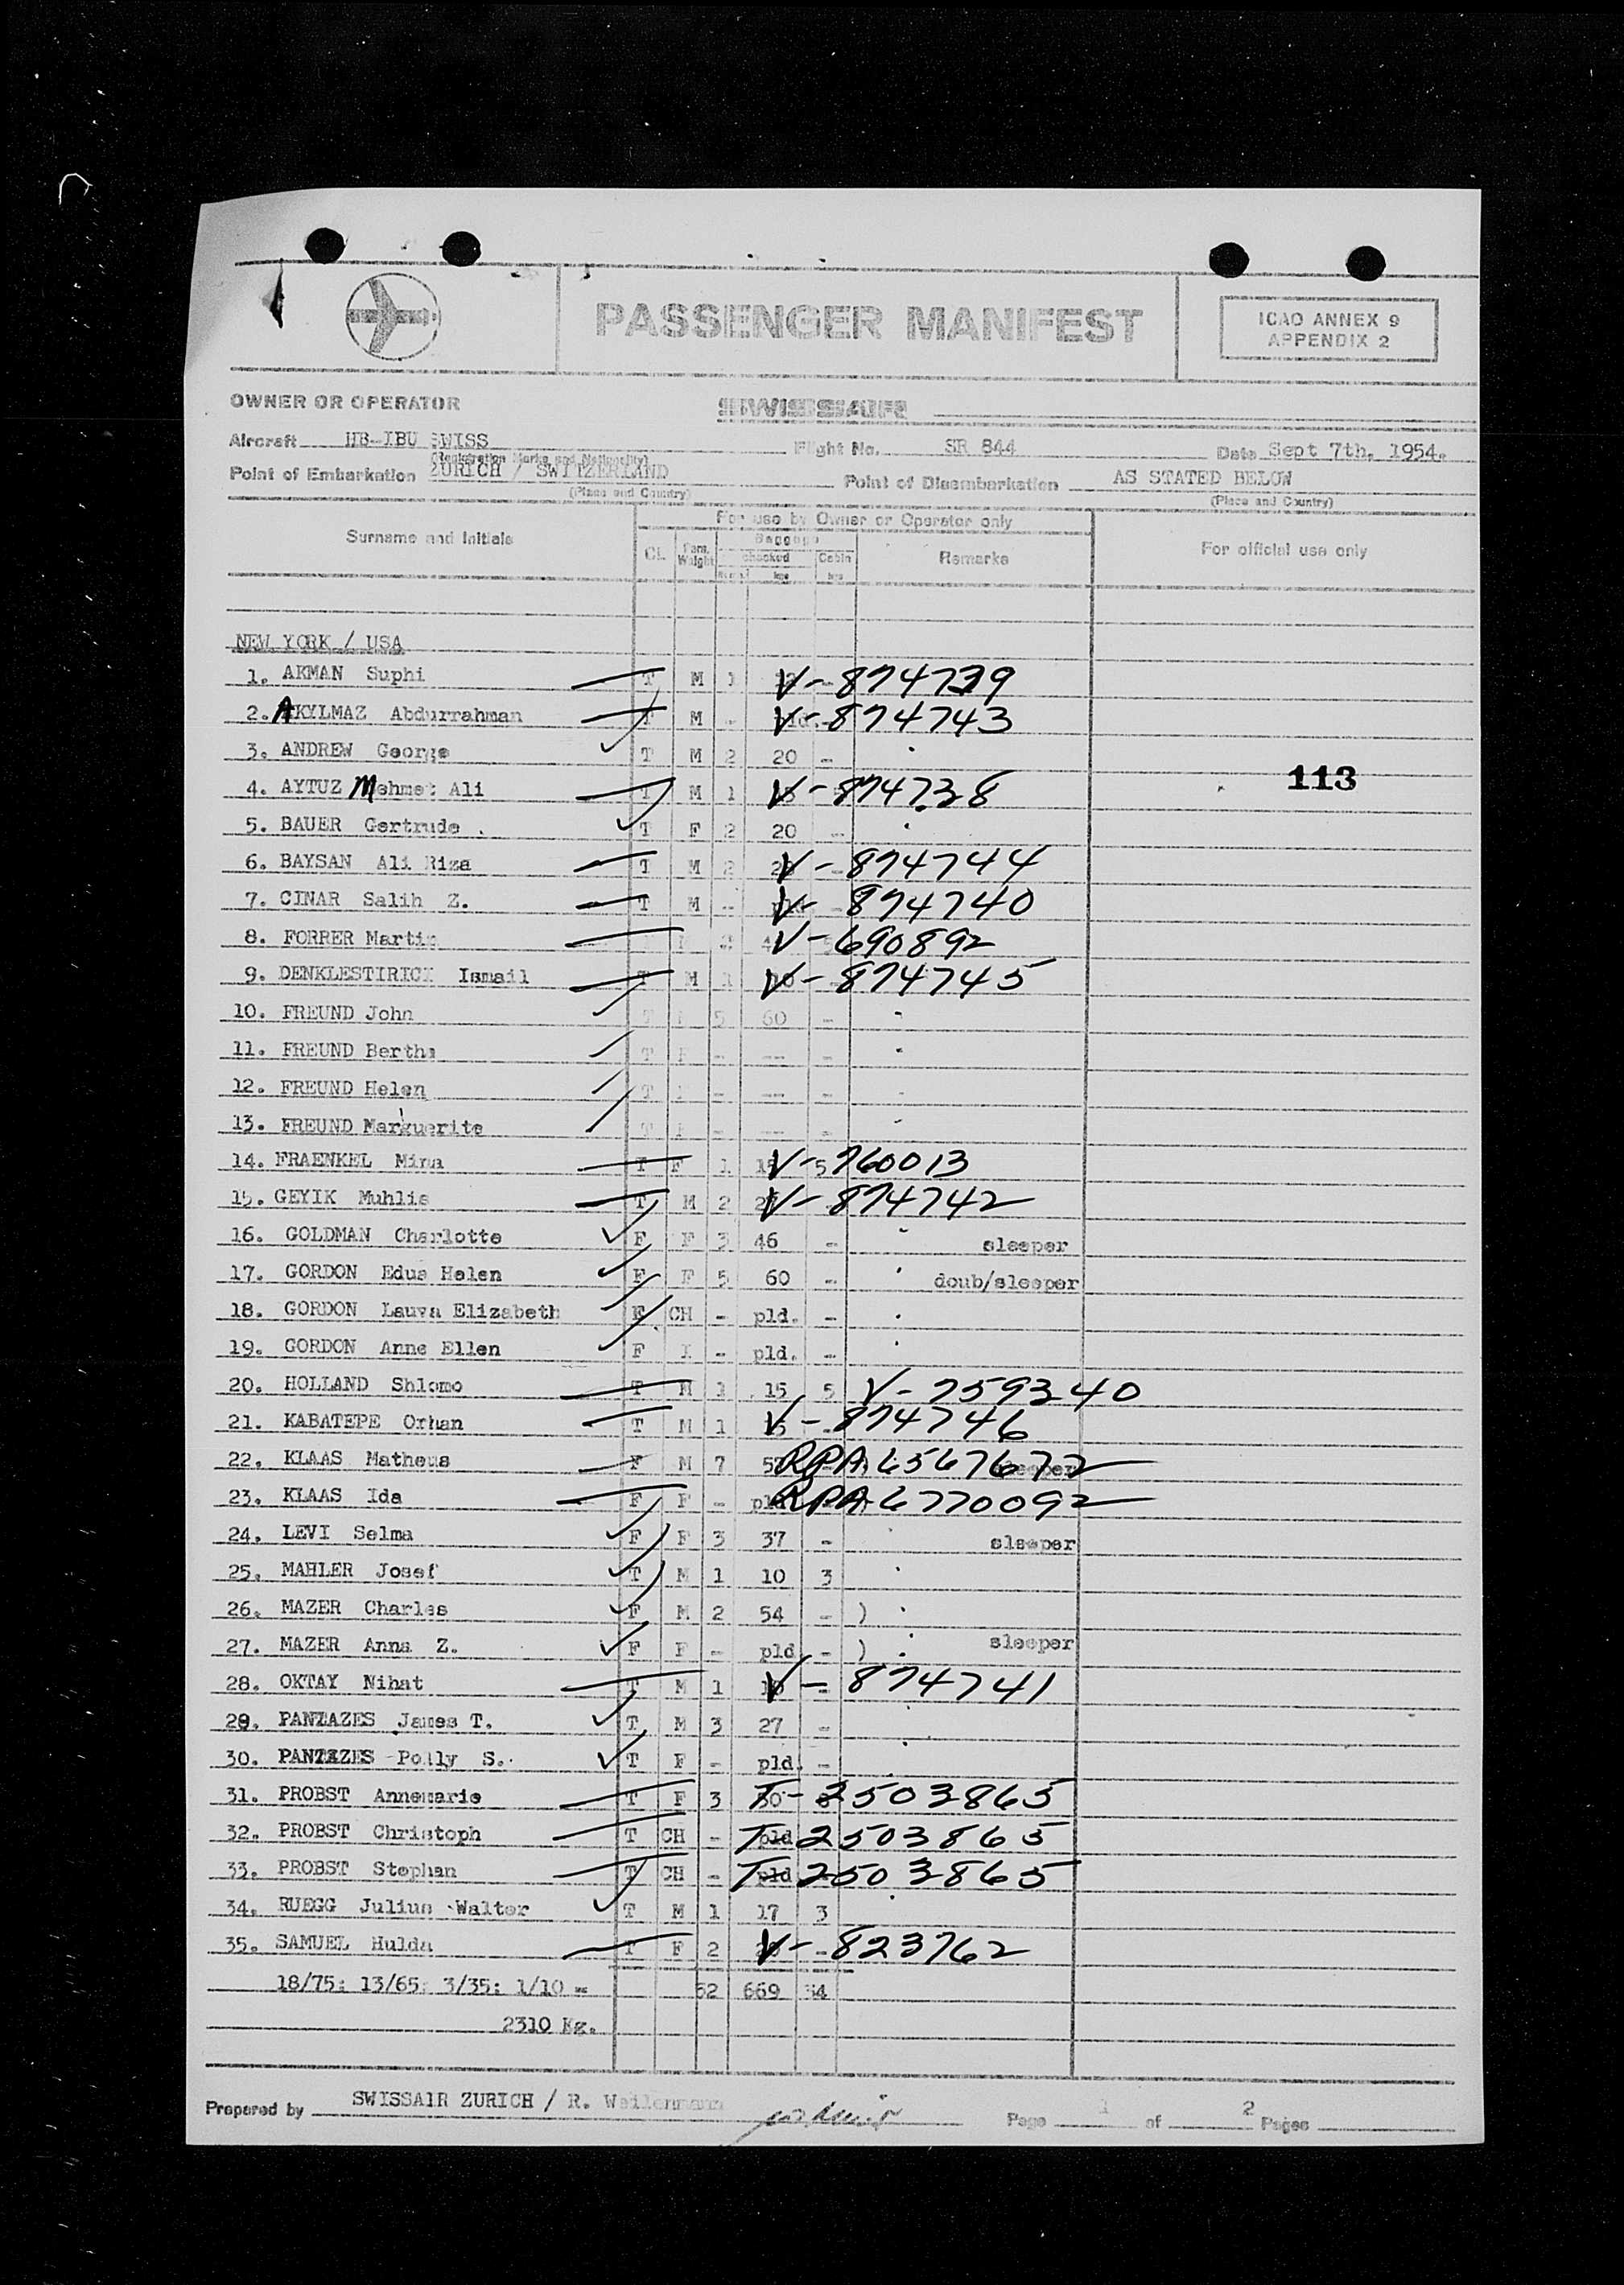 PASSENGER MANIFEST
ICAO ANNEX 9
APPENDIX 2
OWNER OR OPERATOR SWISSAIR
Aircraft HB-IBU SWISS Flight No. SR 844 Date Sept 7th. 1954.
(Registration Marks and Nationality)
Point of Embarkation ZURICH / SWITZERLAND Point of Disembarkation AS STATED BELOW
(Place and Country) (Place and Country)
For use by Owner or Operator only
Surname and Initials Cl. Pass. Weight Baggage checked kgs Cabin kgs Remarks For official use only
NEW YORK / USA
1. AKMAN Suphi T M 1 V-874739
2. AKYLMAZ Abdurrahman T M - V-874743
3. ANDREW George T M 2 20 -
113
4. AYTUZ Mehmet Ali T M 1 V-874738
5. BAUER Gertrude T F 2 20 -
6. BAYSAN Ali Riza T M 2 V-874744
7. CINAR Salih Z. T M - V-874740
8. FORRER Martin V-690892
9. DENKLESTIRICI Ismail T M 1 V-874745
10. FREUND John T 5 60 -
11. FREUND Bertha T F - -- -
12. FREUND Helen T - -- -
13. FREUND Marguerite T - -- -
14. FRAENKEL Mina T F 1 5 V-760013
15. GEYIK Muhlis T M 2 V-874742
16. GOLDMAN Charlotte F F 3 46 - sleeper
17. GORDON Edua Helen F F 5 60 - doub/sleeper
18. GORDON Lauva Elizabeth F CH - pld. -
19. GORDON Anne Ellen F I - pld. -
20. HOLLAND Shlomo T M 1 15 5 V-759340
21. KABATEPE Orhan T M 1 V-874746
22. KLAAS Matheus F M 7 RPA 6567672
23. KLAAS Ida F F - pld RPA 6770092
24. LEVI Selma F F 3 37 - sleeper
25. MAHLER Josef T M 1 10 3
26. MAZER Charles F M 2 54 - )
27. MAZER Anna Z. F F - pld - ) sleeper
28. OKTAY Nihat T M 1 V-874741
29. PANTAZES James T. T M 3 27 -
30. PANTAZES Polly S. T F - pld. -
31. PROBST Annemarie T F 3 T-2503865
32. PROBST Christoph T CH - pld T-2503865
33. PROBST Stephan T CH - pld T-2503865
34. RUEGG Julius Walter T M 1 17 3
35. SAMUEL Hulda T F 2 V-823762
18/75: 13/65: 3/35: 1/10 = 52 669 34
2310 Kg.
Prepared by SWISSAIR ZURICH / R. Weilenmann Page 1 of 2 Pages